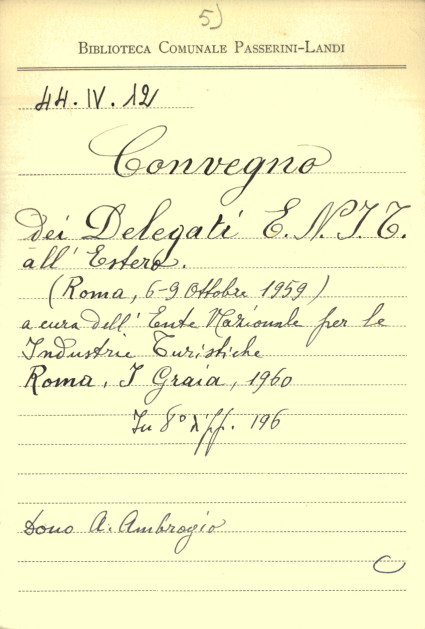 5)
BIBLIOTECA COMUNALE PASSERINI-LANDI
44.IV.12
Convegno
dei Delegati E.N.I.T.
all'Estero.
(Roma, 6-9 Ottobre 1959)
a cura dell'Ente Nazionale per le
Industrie Turistiche
Roma, I Graia, 1960
In 8° pp. 196
Dono A. Ambrogio
C